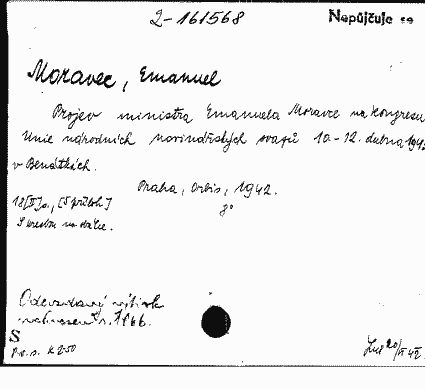 2-161568
Nepůjčuje se
Moravec, Emanuel
Projev ministra Emanuela Moravce na kongresu
Unie národních novinářských svazů 10.-12. dubna 194
v Benátkách.
Praha, Orbis, 1942.
8°
18[II]s., [5 příloh]
Odevzdaný výtisk
nahrazen r. 1966.
S
P.e.s. K 250